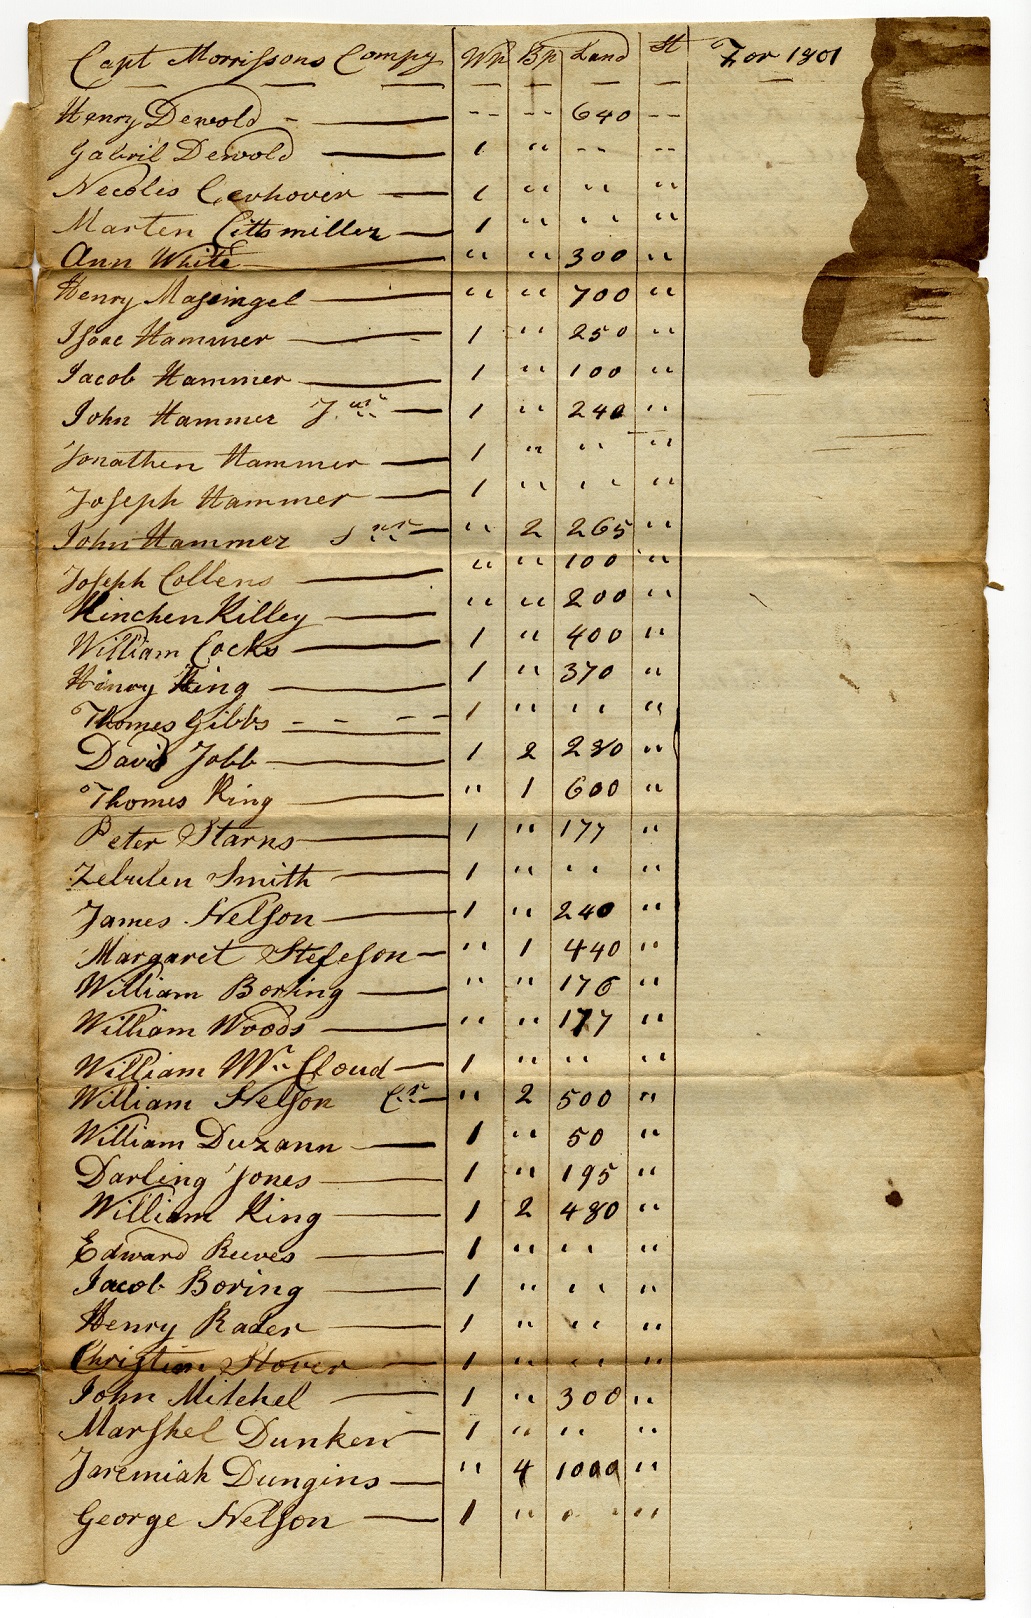 Capt Morrissons Compy Wp Bp Land St For 1801
Henry Dewold - -- -- 640 --
Gabril Dewold 1 " -- --
Necolis 1 " " "
Marten Cittsmiller 1 " " "
Ann White " " 300 "
Henry Masengel " " 700 "
Isaac Hammer 1 " 250 "
Jacob Hammer 1 " 100 "
John Hammer Jur 1 " 240 "
Jonathen Hammer 1 " " "
Joseph Hammer 1 " " "
John Hammer Snr " 2 265 "
Joseph Collens " " 100 "
Kinchen Killey " " 200 "
William Cocks 1 " 400 "
Hinry King 1 " 370 "
Thomes Gibbs 1 " " "
David Jobb 1 2 230 "
Thomes King " 1 600 "
Peter Starns 1 " 177 "
Zebulen Smith 1 " " "
James Nelson 1 " 240 "
Margaret Stefeson " 1 440 "
William Boring " " 176 "
William Woods " " 177 "
William Mc Cloud 1 " " "
William Nelson " 2 500 "
William Duzann 1 " 50 "
Darling Jones 1 " 195 "
William King 1 2 480 "
Edward Reeves 1 " " "
Jacob Boring 1 " " "
Henry Rader 1 " " "
Christian Stover 1 " " "
John Mitchel 1 " 300 "
Marshel Dunken 1 " " "
Jaremiah Dungins " 4 1000 "
George Nelson 1 " " "